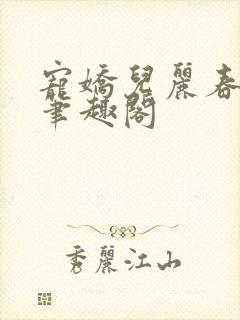 寵嬌兒麗春
筆趣閣
秀麗江山